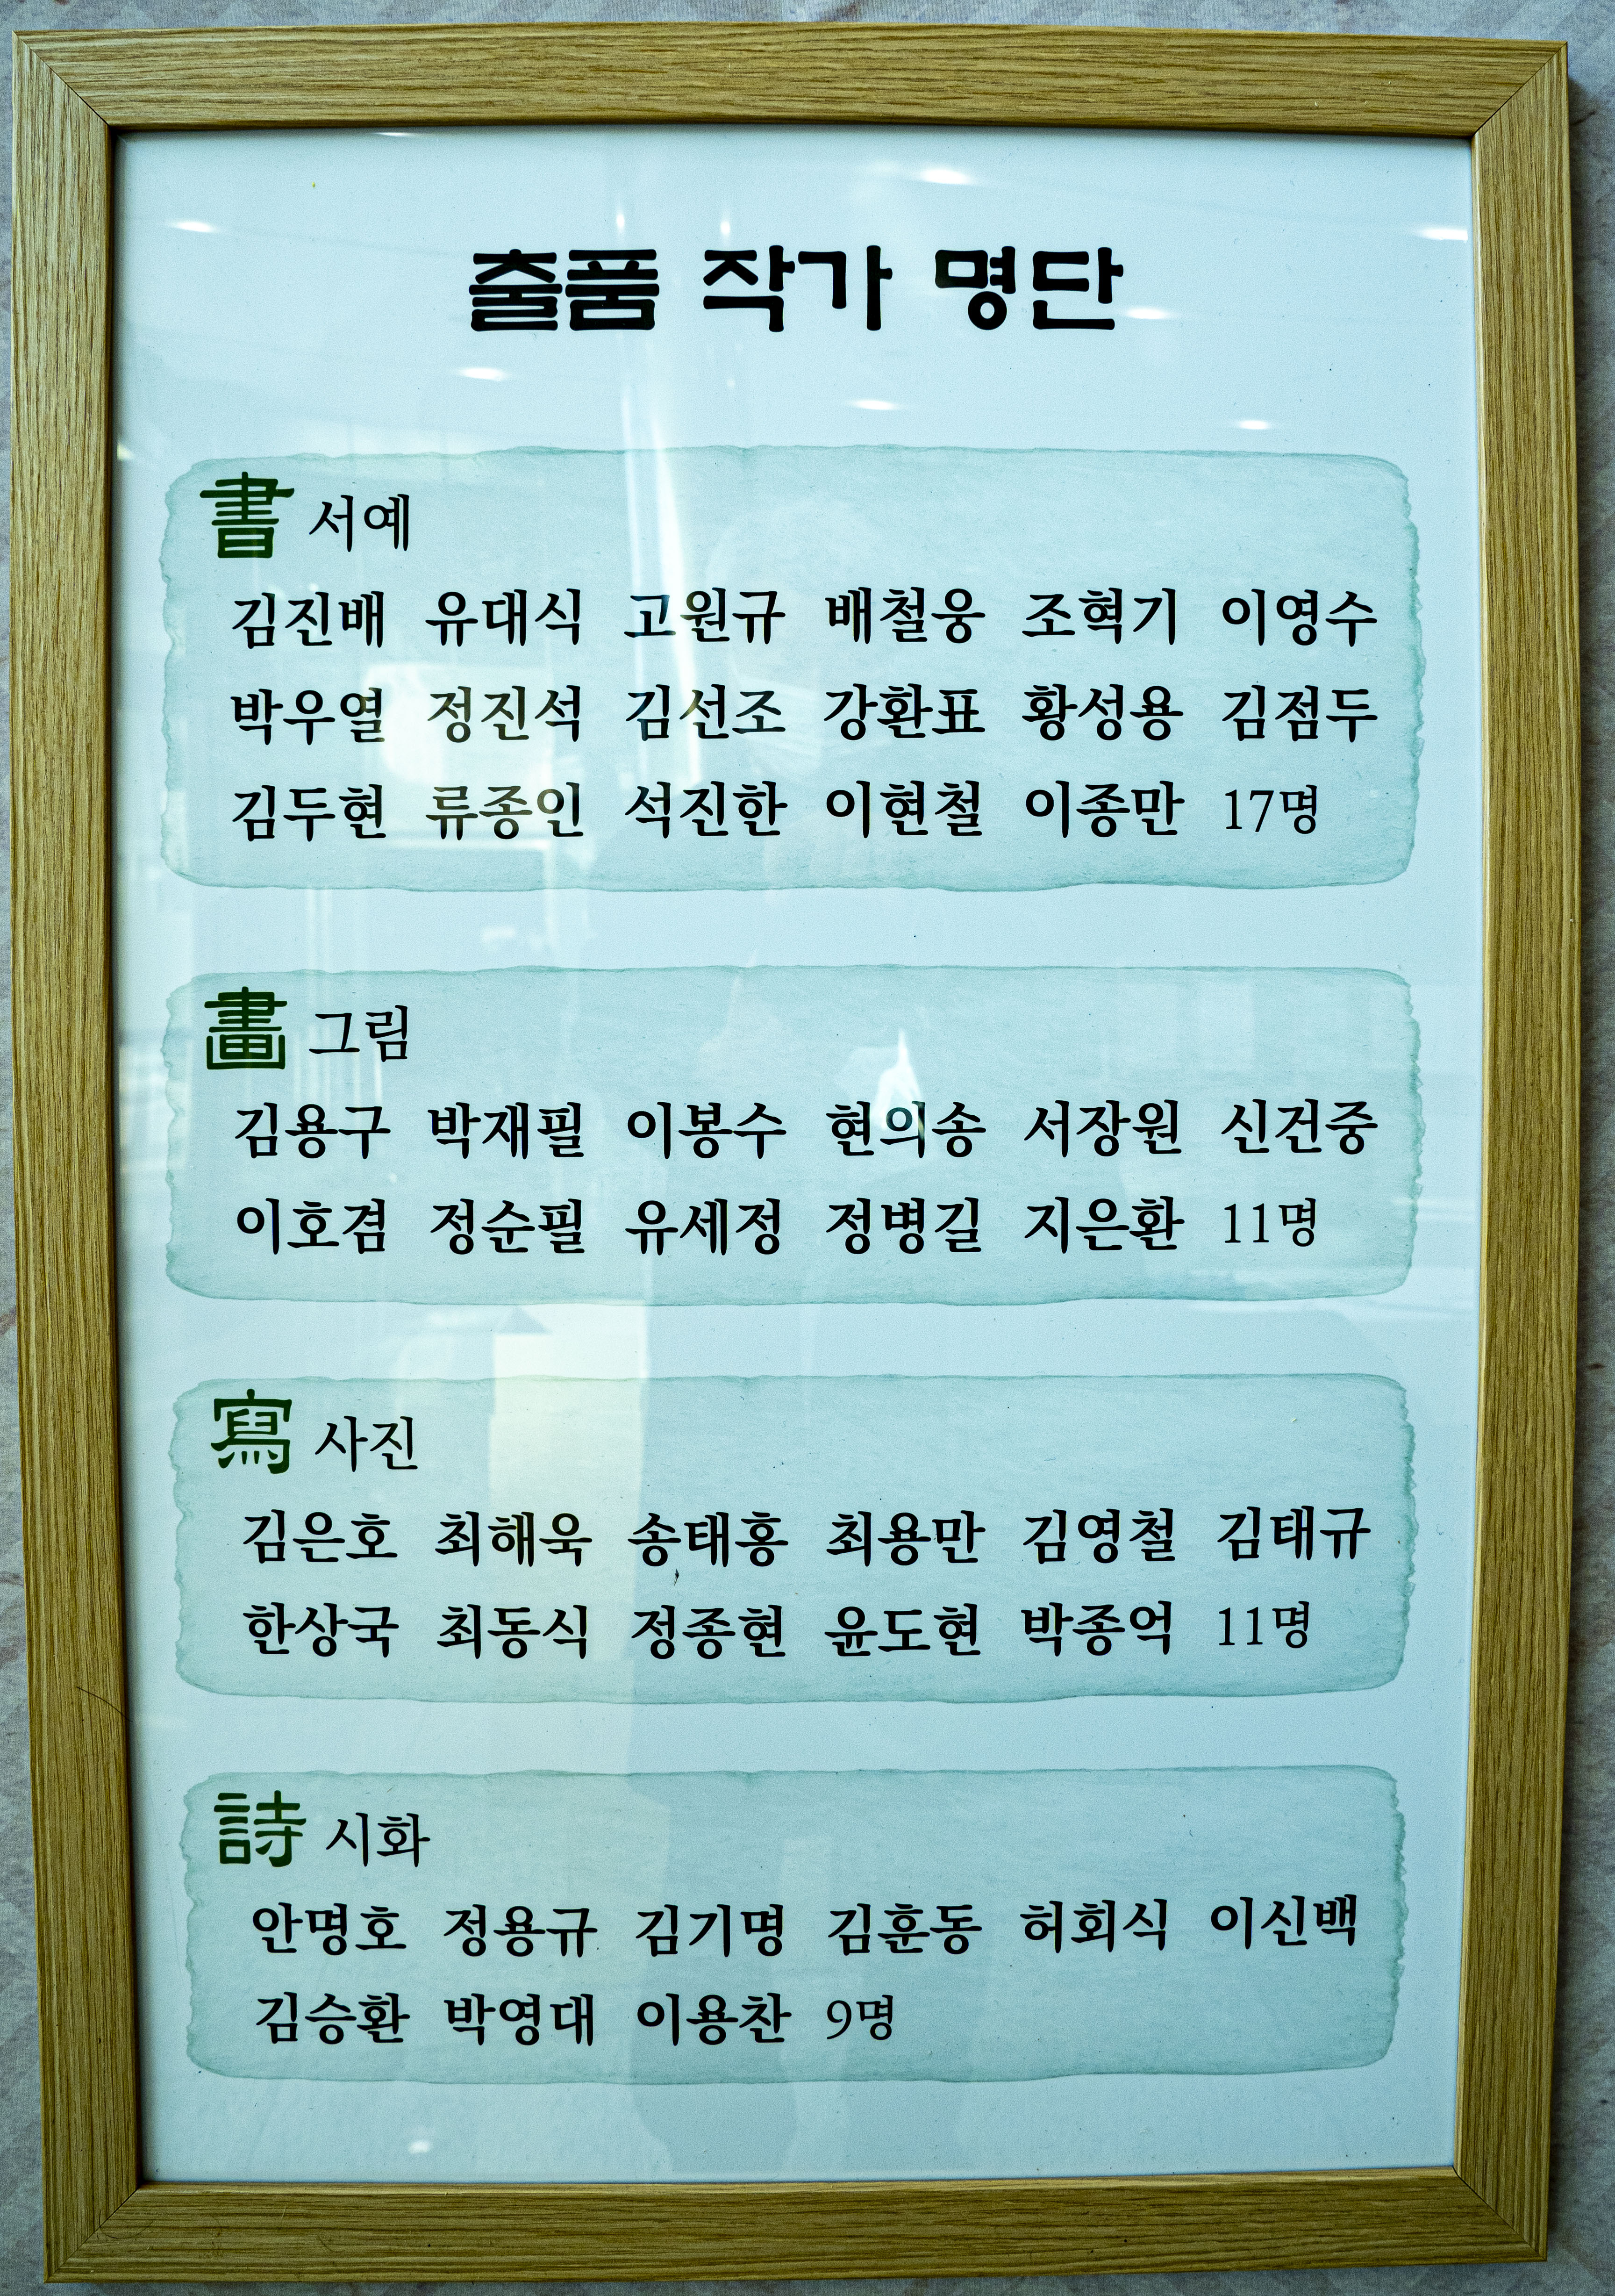 출품 작가 명단
書 서예
김진배 유대식 고원규 배철웅 조혁기 이영수
박우열 정진석 김선조 강환표 황성용 김점두
김두현 류종인 석진한 이현철 이종만 17명
畫 그림
김용구 박재필 이봉수 현의송 서장원 신건중
이호겸 정순필 유세정 정병길 지은환 11명
寫 사진
김은호 최해욱 송태홍 최용만 김영철 김태규
한상국 최동식 정종현 윤도현 박종억 11명
詩 시화
안명호 정용규 김기명 김훈동 허회식 이신백
김승환 박영대 이용찬 9명